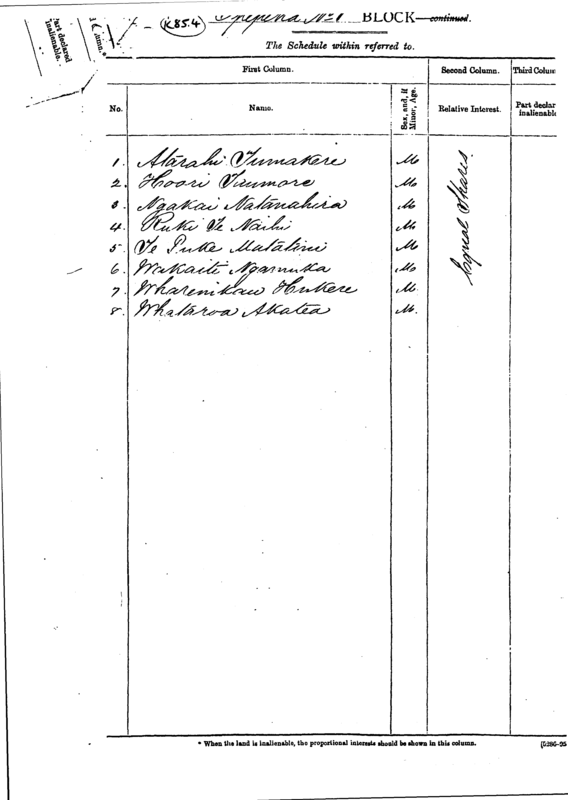 Part declared
inalienable.
(K85.4) No 1 BLOCK—continued.
The Schedule within referred to.
First Column. Second Column. Third Colum
No. Name. Sex, and, if Minor, Age. Relative Interest. Part declar inalienable
1. Atarahi Tumakere M
2. Hoori Taumore M
3. Ngakai Natanahira M
4. Ruki Te Naihi M
5. Te Puke Matatini M
6. Wakaiti Ngarnuka M
7. Wharenikau Hukere M
8. Whataroa Akatea M.
Equal Shares.
* When the land is inalienable, the proportional interests should be shown in this column. [5286-95